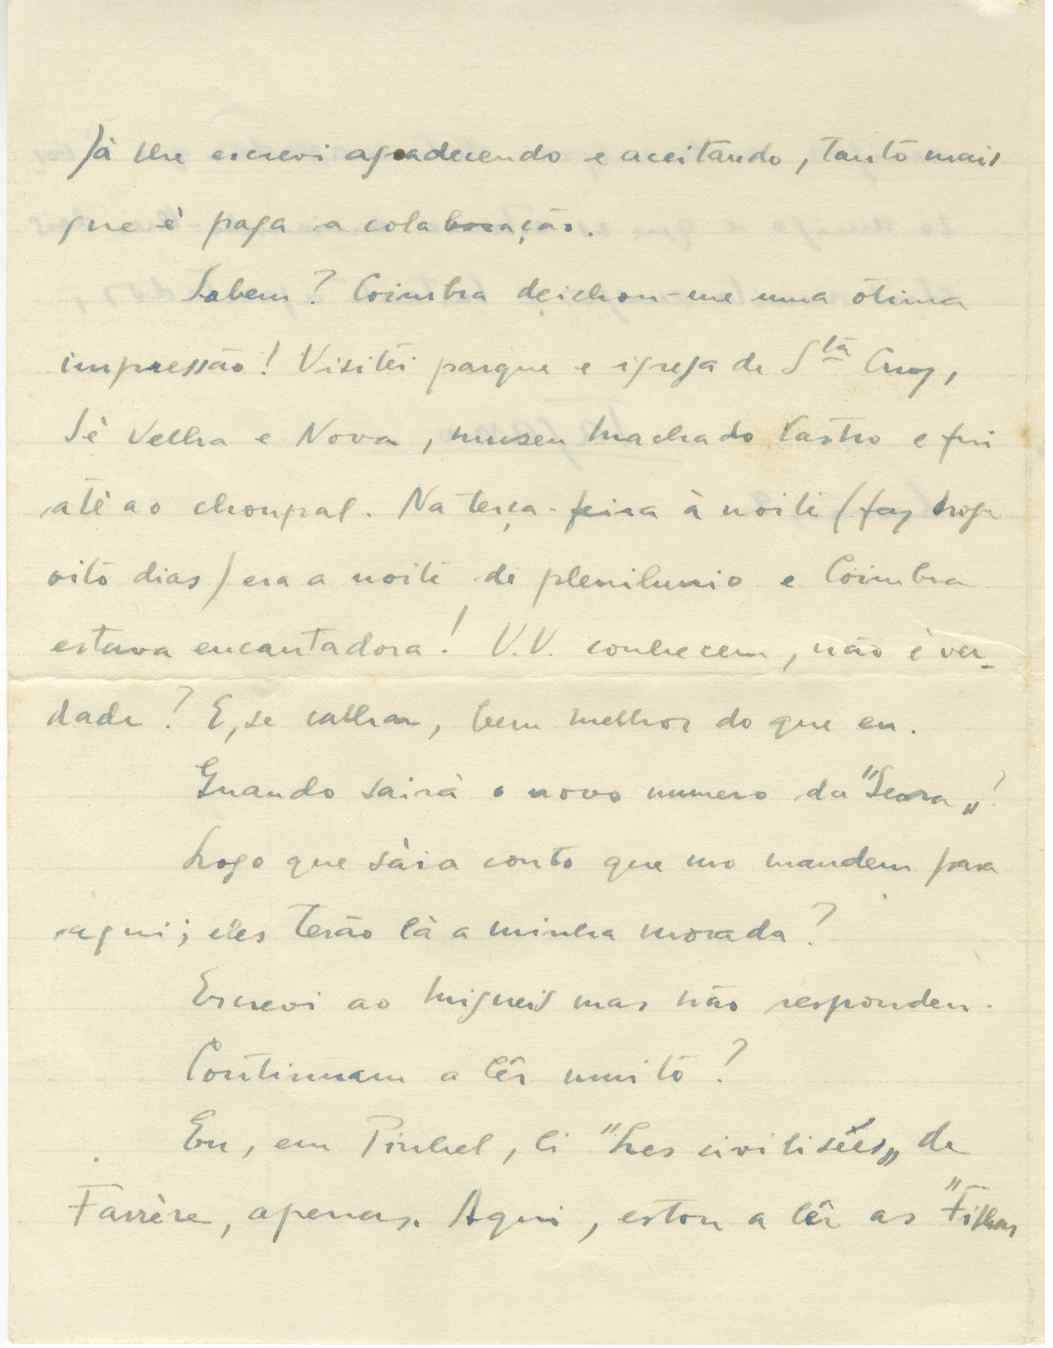 Já lhe escrevi agradecendo e aceitando, tanto mais
que é paga a colaboração.
Sabem? Coimbra deichou-me uma ótima
impressão! Visitei parque e igreja de Sta Cruz,
Sé Velha e Nova, museu Machado Castro e fui
até ao choupal. Na terça-feira à noite (faz hoje
oito dias) era a noite de plenilunio e Coimbra
estava encantadora! V.V. conhecem, não é ver-
dade? E, se calhar, bem melhor do que eu.
Quando sairá o novo numero da "Seara"?
Logo que sáia conto que mo mandem para
aqui; eles terão lá a minha morada?
Escrevi ao Migueis mas não respondeu.
Continuam a lêr muito?
Eu, em Pinhel, li "Les civilisées" de
Farrère, apenas. Aqui, estou a lêr as "Filhas